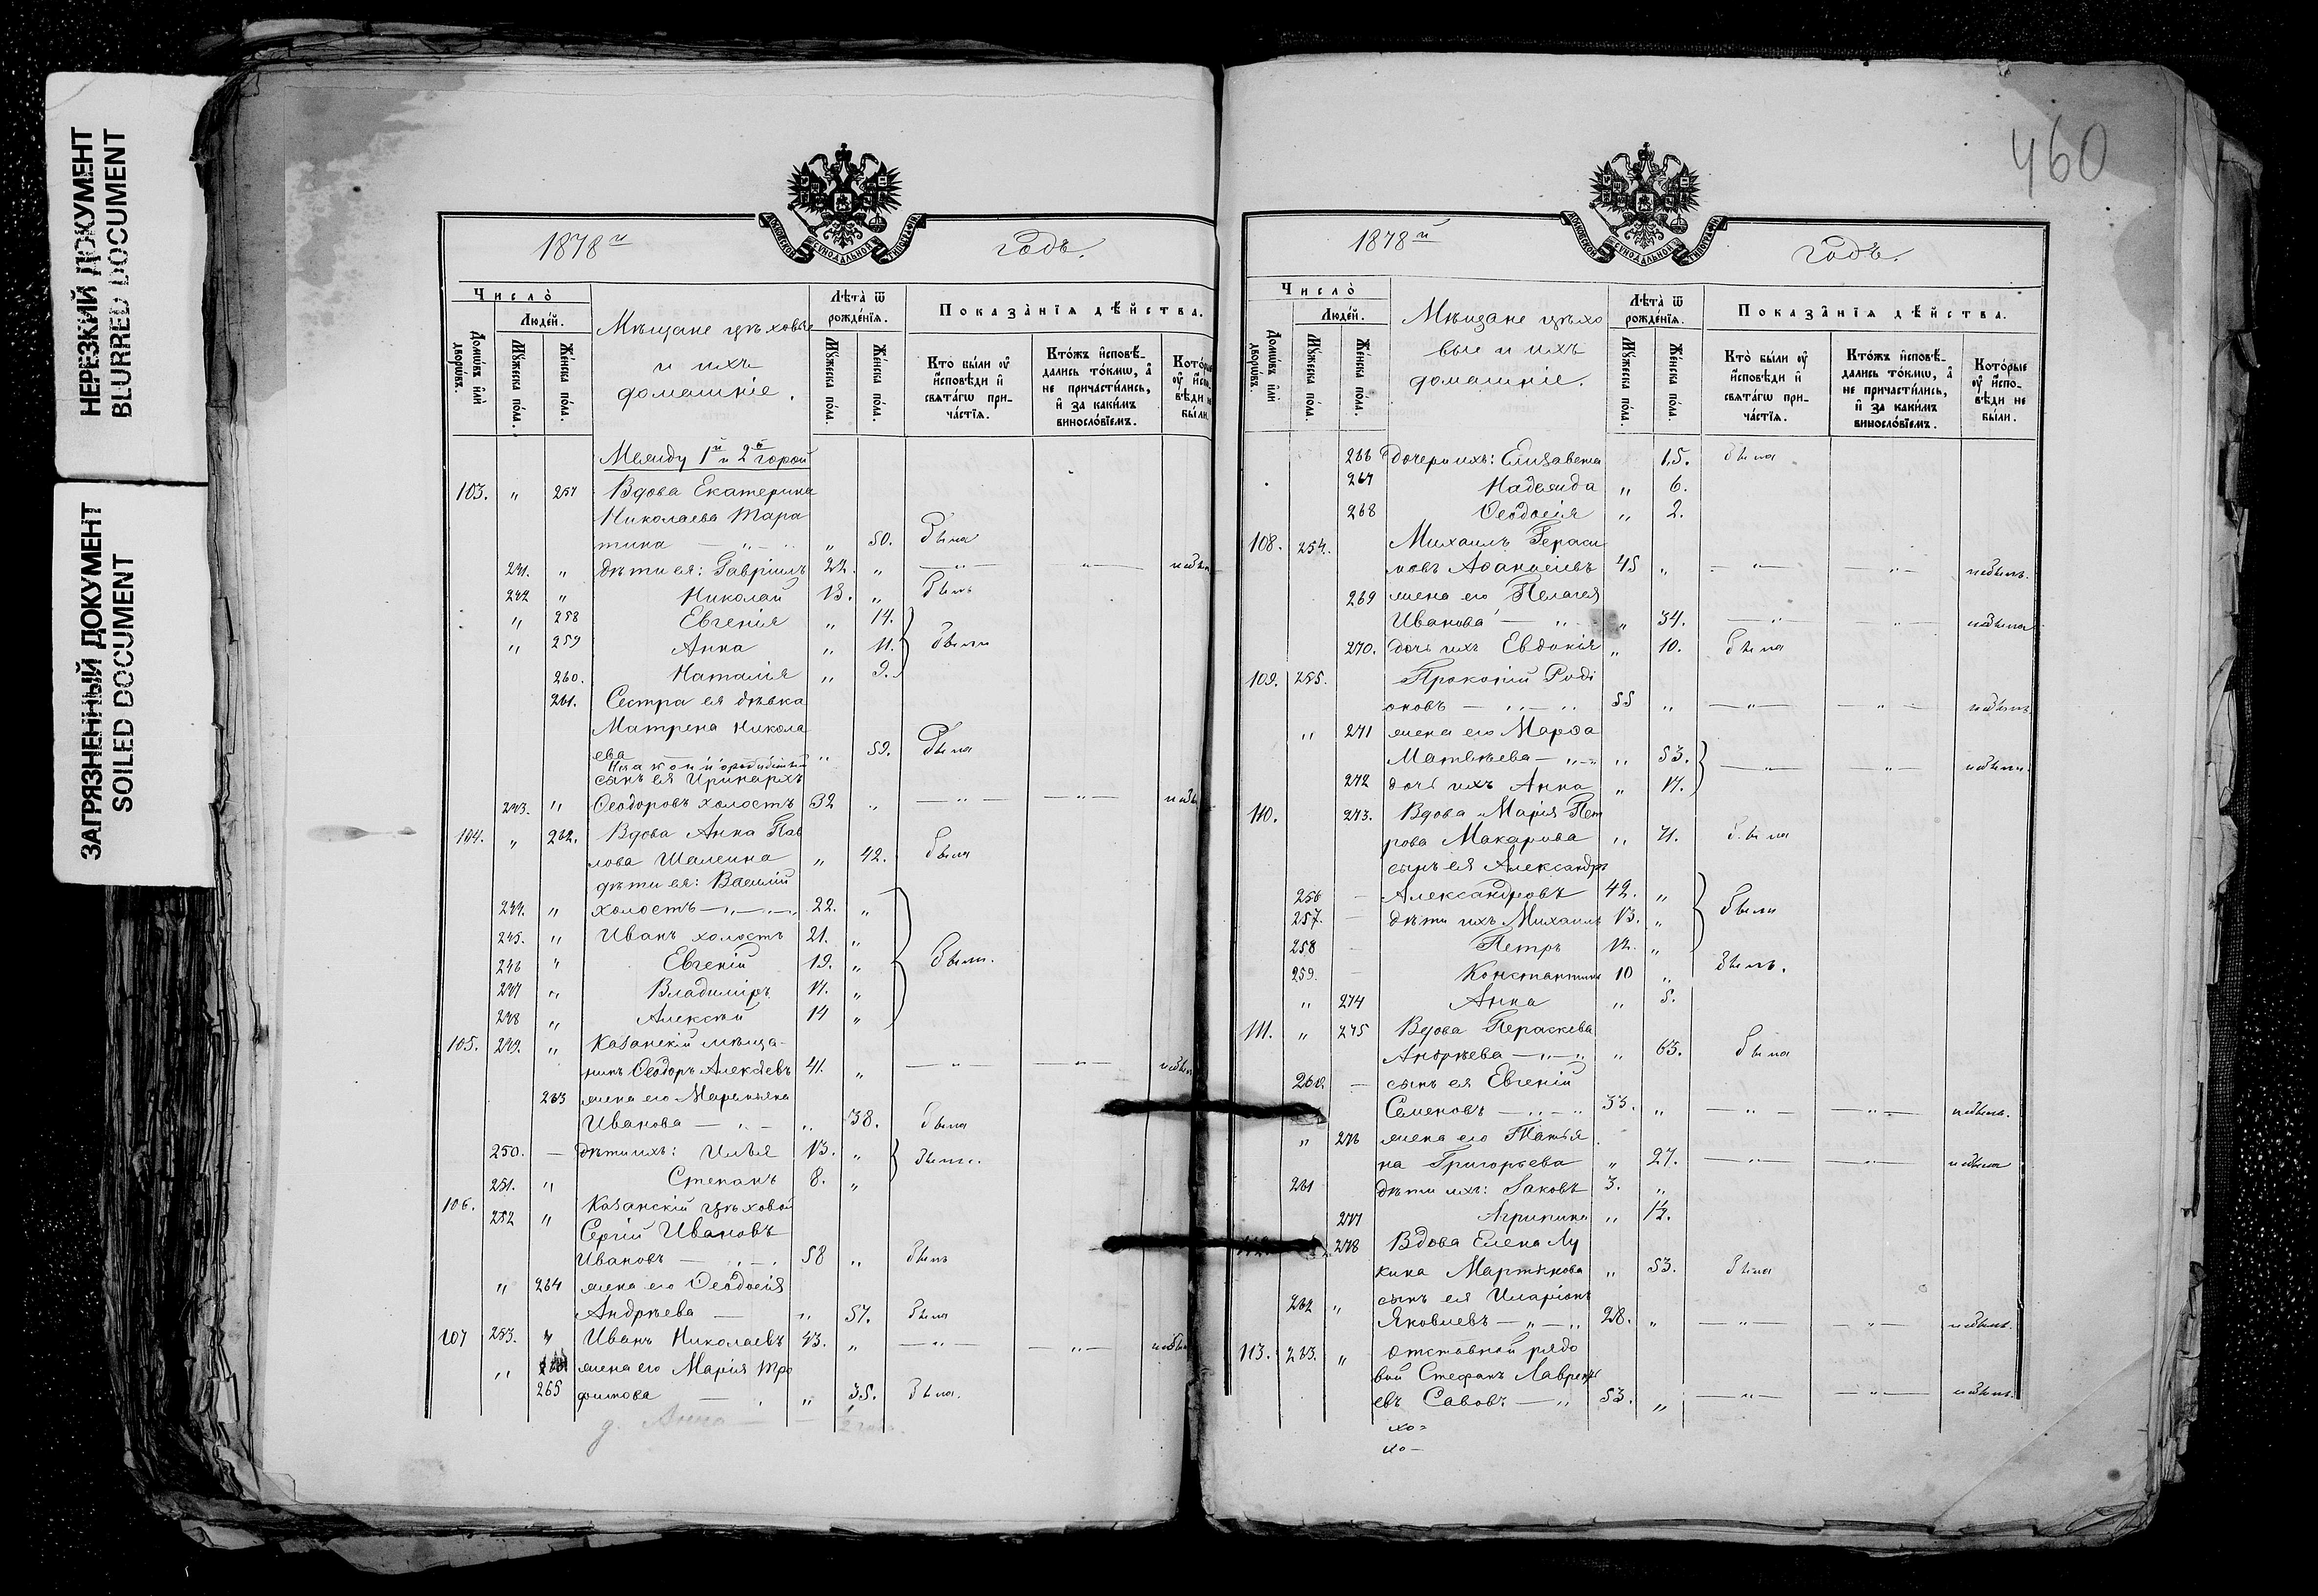 НЕРЕЗКИЙ ДОКУМЕНТ
BLURRED DOCUMENT
ЗАГРЯЗНЕННЫЙ ДОКУМЕНТ
SOILED DOCUMENT
1878й годъ.
Число̀
Домѡ́въ и҆лѝ дворѡ́въ.
Люде́й.
Мꙋ́жеска по́ла.
Же́нска по́ла.
Мѣщане цѣховые
и ихъ
домашніе.
Лѣта̀ ѿ рожде́нїѧ.
Мꙋ́жеска по́ла.
Же́нска по́ла.
Показа̑нїѧ дѣ́йства.
Кто̀ бы́ли оу҆ и҆сповѣ́ди и҆ свѧта́гѡ прича́стїѧ.
Кто́жъ и҆сповѣ́дались то́кмѡ, а҆ не причасти́лись, и҆ за каки́мъ виносло́вїемъ.
Между 1й и 2й горой
103. " 257 Вдова Екатерина
Николаева Тара
тина " 50. была
241. " дѣти ея: Гавріилъ 22. "
242 " Николай 13. " былъ
" 258 Евгенія " 14.
" 259 Анна " 11. были
260. Наталія " 9.
261. Сестра ея дѣвка
Матрена Никола
ева " 59. была
сынъ ея Иринархъ
243. " Ѳеодоровъ холостъ 32 "
104. " 262. Вдова Анна Пав
лова Шалгина " 42. была
дѣти ея: Василій
244. " холостъ 22. "
245. " Иванъ холостъ 21. "
246 " Евгеній 19. " были.
247 " Владиміръ 17. "
248 " Алексѣй 14 "
105. 249. " Казанскій мѣща-
нинъ Ѳеодоръ Алексѣевъ 41. "
263 жена его Маремьяна
Иванова " 38. была
250. — дѣти ихъ: Илья 13. " были.
251. " Степанъ 8. "
106. 252 " Казанскій цѣховой
Сергій Ивановъ
Ивановъ 58 " былъ
" 264 жена его Ѳеодосія
Андрѣева " 57. была
107 253. " Иванъ Николаевъ 43. "
" 265 жена его Марія Тро
фимова " 35. была.
д. Анна
460
1878й годъ.
Число̀
Домѡ́въ и҆лѝ дворѡ́въ.
Люде́й.
Мꙋ́жеска по́ла.
Же́нска по́ла.
Мѣщане цѣхо
вые и ихъ
домашніе.
Лѣта̀ ѿ рожде́нїѧ.
Мꙋ́жеска по́ла.
Же́нска по́ла.
Показа̑нїѧ дѣ́йства.
Кто̀ бы́ли оу҆ и҆сповѣ́ди и҆ свѧта́гѡ прича́стїѧ.
Кто́жъ и҆сповѣ́дались то́кмѡ, а҆ не причасти́лись, и҆ за каки́мъ виносло́вїемъ.
Кото́рые оу҆ и҆сповѣ́ди не бы́ли.
266 дочери ихъ: Елизавета 15. была
267 Надежда " 6.
268 Ѳеодосія " 2.
108. 254. Михаилъ Гераси
мовъ Аѳанасьевъ 45 " небылъ.
269 жена его Пелагея
Иванова " 34. небыла
270. дочь ихъ Евдокія " 10. была
109. 255. Прокопій Роді
оновъ 55 " небылъ
" 271 жена его Марѳа
Матвѣева " 53.
272 дочь ихъ Анна " 17. небыли.
110. 273. Вдова Марія Пет
рова Макарова " 71. была
сынъ ея Александръ
256 — Александровъ 42. "
257. — дѣти ихъ Михаилъ 13. " были
258 — Петръ 12. "
259. — Константинъ 10 " былъ.
" 274 Анна " 5.
111. " 275 Вдова Пераскева
Андрѣева " 63. была
260. — сынъ ея Евгеній
Семеновъ 33. " небылъ.
" 276 жена его Татья
на Григорьева " 27. небыла
261 дѣти ихъ: Іаковъ 3. "
277 Агрипина " 1/2.
278 Вдова Елена Лу
кина Мартынова " 53. была
262 " сынъ ея Иларіонъ
Яковлевъ 28. " небылъ.
113. 263. " отставной рядо
вой Стефанъ Лаврентъ
евъ Савовъ 53. " небылъ.